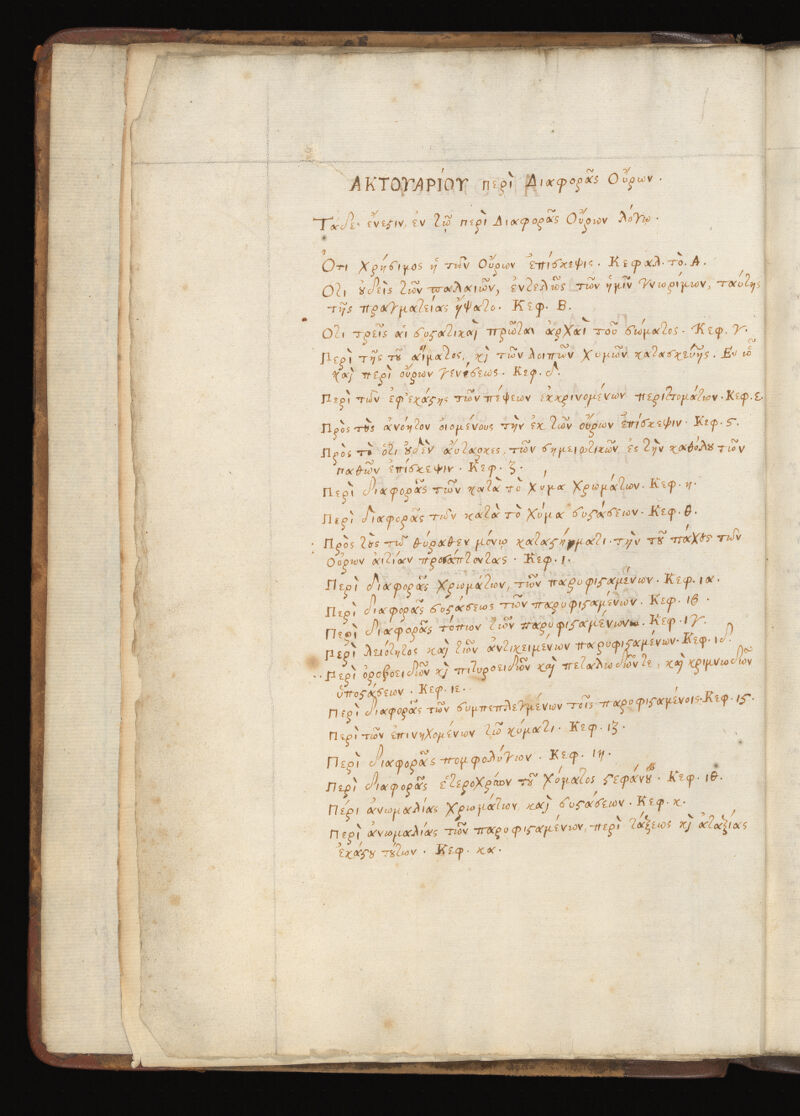 ΑΚΤΟΥΑΡΊΟΥ περὶ Διαφορᾶς Οὔρων.
Τάδε ἔνεϛιν ἐν τῷ περὶ Διαφορᾶς Οὔρων λόγῳ.
Ὅτι Χρήσιμος ἡ τῶν Οὔρων ἐπίσκεψις. Κεφαλ. τὸ. Α.
Ὅτι ȣ̓δεὶς τῶν παλαιῶν, ἐντελῶς τῶν ἡμῖν γνωρίμων, ταύτης
τῆς πραγματείας ἥψατο. Κεφ. Β.
Ὅτι τρεῖς αἱ συϛατικαὶ πρῶται ἀρχαὶ τοῦ σώματος. Κεφ. γ.
Περὶ τῆς τȣ͂ αἵματος, κὶ τῶν λοιπῶν χυμῶν κατασκευῆς. Ἐν ᾧ
καὶ περὶ οὔρων γενέσεως. Κεφ. δ.
Περὶ τῶν ἐφ' ἑκάϛης τῶν πέψεων ἐκκρινομένων περιττομάτων. Κεφ. ε.
Πρὸς τȣ̀ς ἀνόητον οἰομένους τὴν ἐκ τῶν οὔρων ἐπίσκεψιν. Κεφ. ϛ.
Πρὸς τὸ ὅτι ȣ̓δὲν αὔταρκες, τῶν σημειωτικῶν ἐς τὴν καθόλȣ τῶν
παθῶν ἐπίσκεψιν. Κεφ. ζ.
Περὶ διαφορᾶς τῶν κατὰ τὸ χύμα Χρωμάτων. Κεφ. η.
Περὶ διαφορᾶς τῶν κατὰ τὸ χύμα συϛάσεων. Κεφ. θ.
Πρὸς τȣ̀ς τῷ θύραθεν μόνῳ καταϛήματι τὴν τȣ͂ πάχȣς τῶν
Οὔρων αἰτίαν προσάπτοντας. Κεφ. ι.
Περὶ διαφορᾶς Χρωμάτων, τῶν παρυφιϛαμένων. Κεφ. ια.
Περὶ διαφορᾶς συϛάσεως τῶν παρυφιϛαμένων. Κεφ. ιβ.
Περὶ διαφορᾶς τόπων τῶν παρυφιϛαμένων. Κεφ. ιγ.
Περὶ λειότητος καὶ τῶν ἀντικειμένων παρυφιϛαμένων. Κεφ. ιδ.
Περὶ ὀροβοειδῶν κὶ πιτυροειδῶν καὶ πεταλωδῶν τε, καὶ κριμνωδῶν
ὑποϛάσεων. Κεφ. ιε.
Περὶ διαφορᾶς τῶν συμπεπλεγμένων τοῖς παρυφιϛαμένοις. Κεφ. ιϛ.
Περὶ τῶν ἐπινηχομένων τῷ χύματι. Κεφ. ιζ.
Περὶ διαφορᾶς πομφολύγων. Κεφ. ιη.
Περὶ διαφορᾶς ἑτεροχρόων τȣ͂ χύματος ϛεφάνȣ. Κεφ. ιθ.
Περὶ ἀνωμαλίας Χρωμάτων καὶ συϛάσεων. Κεφ. κ.
Περὶ ἀνωμαλίας τῶν παρυφιϛαμένων, περὶ τάξεως κὶ ἀταξίας
ἑκάϛȣ τȣ́των. Κεφ. κα.